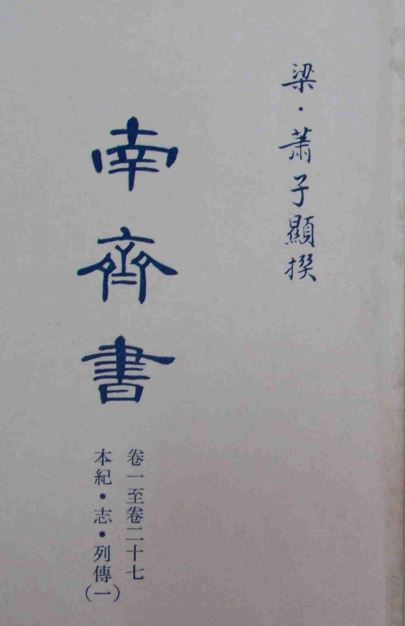 梁·蕭子顯撰
南齊書
卷一至卷二十七
本紀·志·列傳(一)